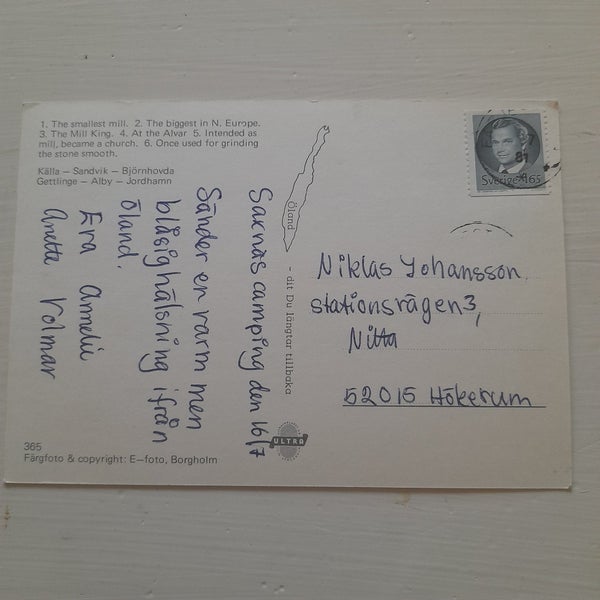 1. The smallest mill. 2. The biggest in N. Europe.
3. The Mill King. 4. At the Alvar 5. Intended as
mill, became a church. 6. Once used for grinding
the stone smooth.
Källa – Sandvik – Björnhovda
Gettlinge – Alby – Jordhamn
Saxnäs camping den 16/7
Sänder en varm men
blåsig hälsning ifrån
Öland.
Eva Annelii
Anette Volmar
Öland
- dit Du längtar tillbaka
ULTRA
365
Färgfoto & copyright: E–foto, Borgholm
Sverige 165
81
Niklas Johansson
stationsvägen 3,
Nitta
52015 Hökerum